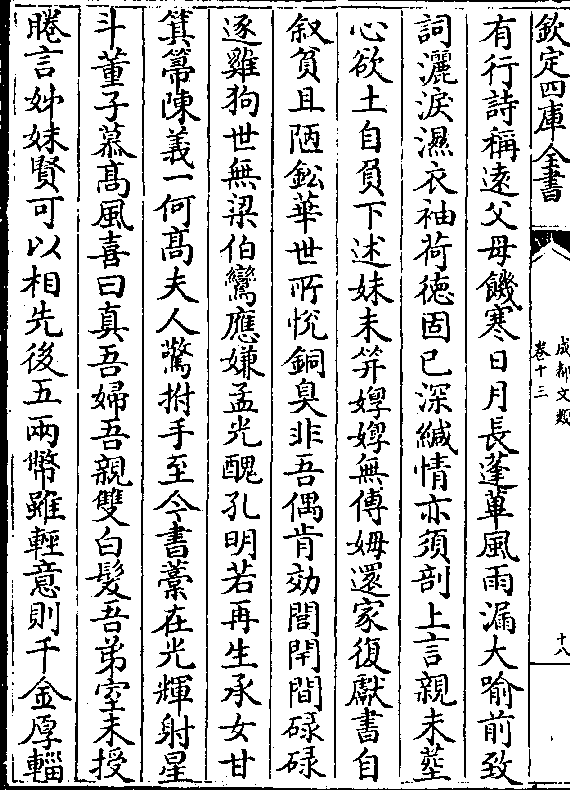 欽定四庫全書
成都文類
卷十三
十八
有行詩稱遠父母饑寒日月長蓬蓽風雨漏大喻前致
詞灑淚濕衣袖荷徳固已深緘情亦須剖上言親未塟
心欲土自負下述妹未笄㛹㛹無傅姆還家復獻書自
叙貧且陋鈆華世所悅銅臭非吾偶肯効閭閈間碌碌
逐雞狗世無梁伯鸞應嫌孟光醜孔明若再生承女甘
箕箒陳義一何髙夫人驚拊手至今書藁在光輝射星
斗董子慕髙風喜曰真吾婦吾親雙白髪吾弟室未授
睠言姊妹賢可以相先後五兩幣雖輕意則千金厚輜